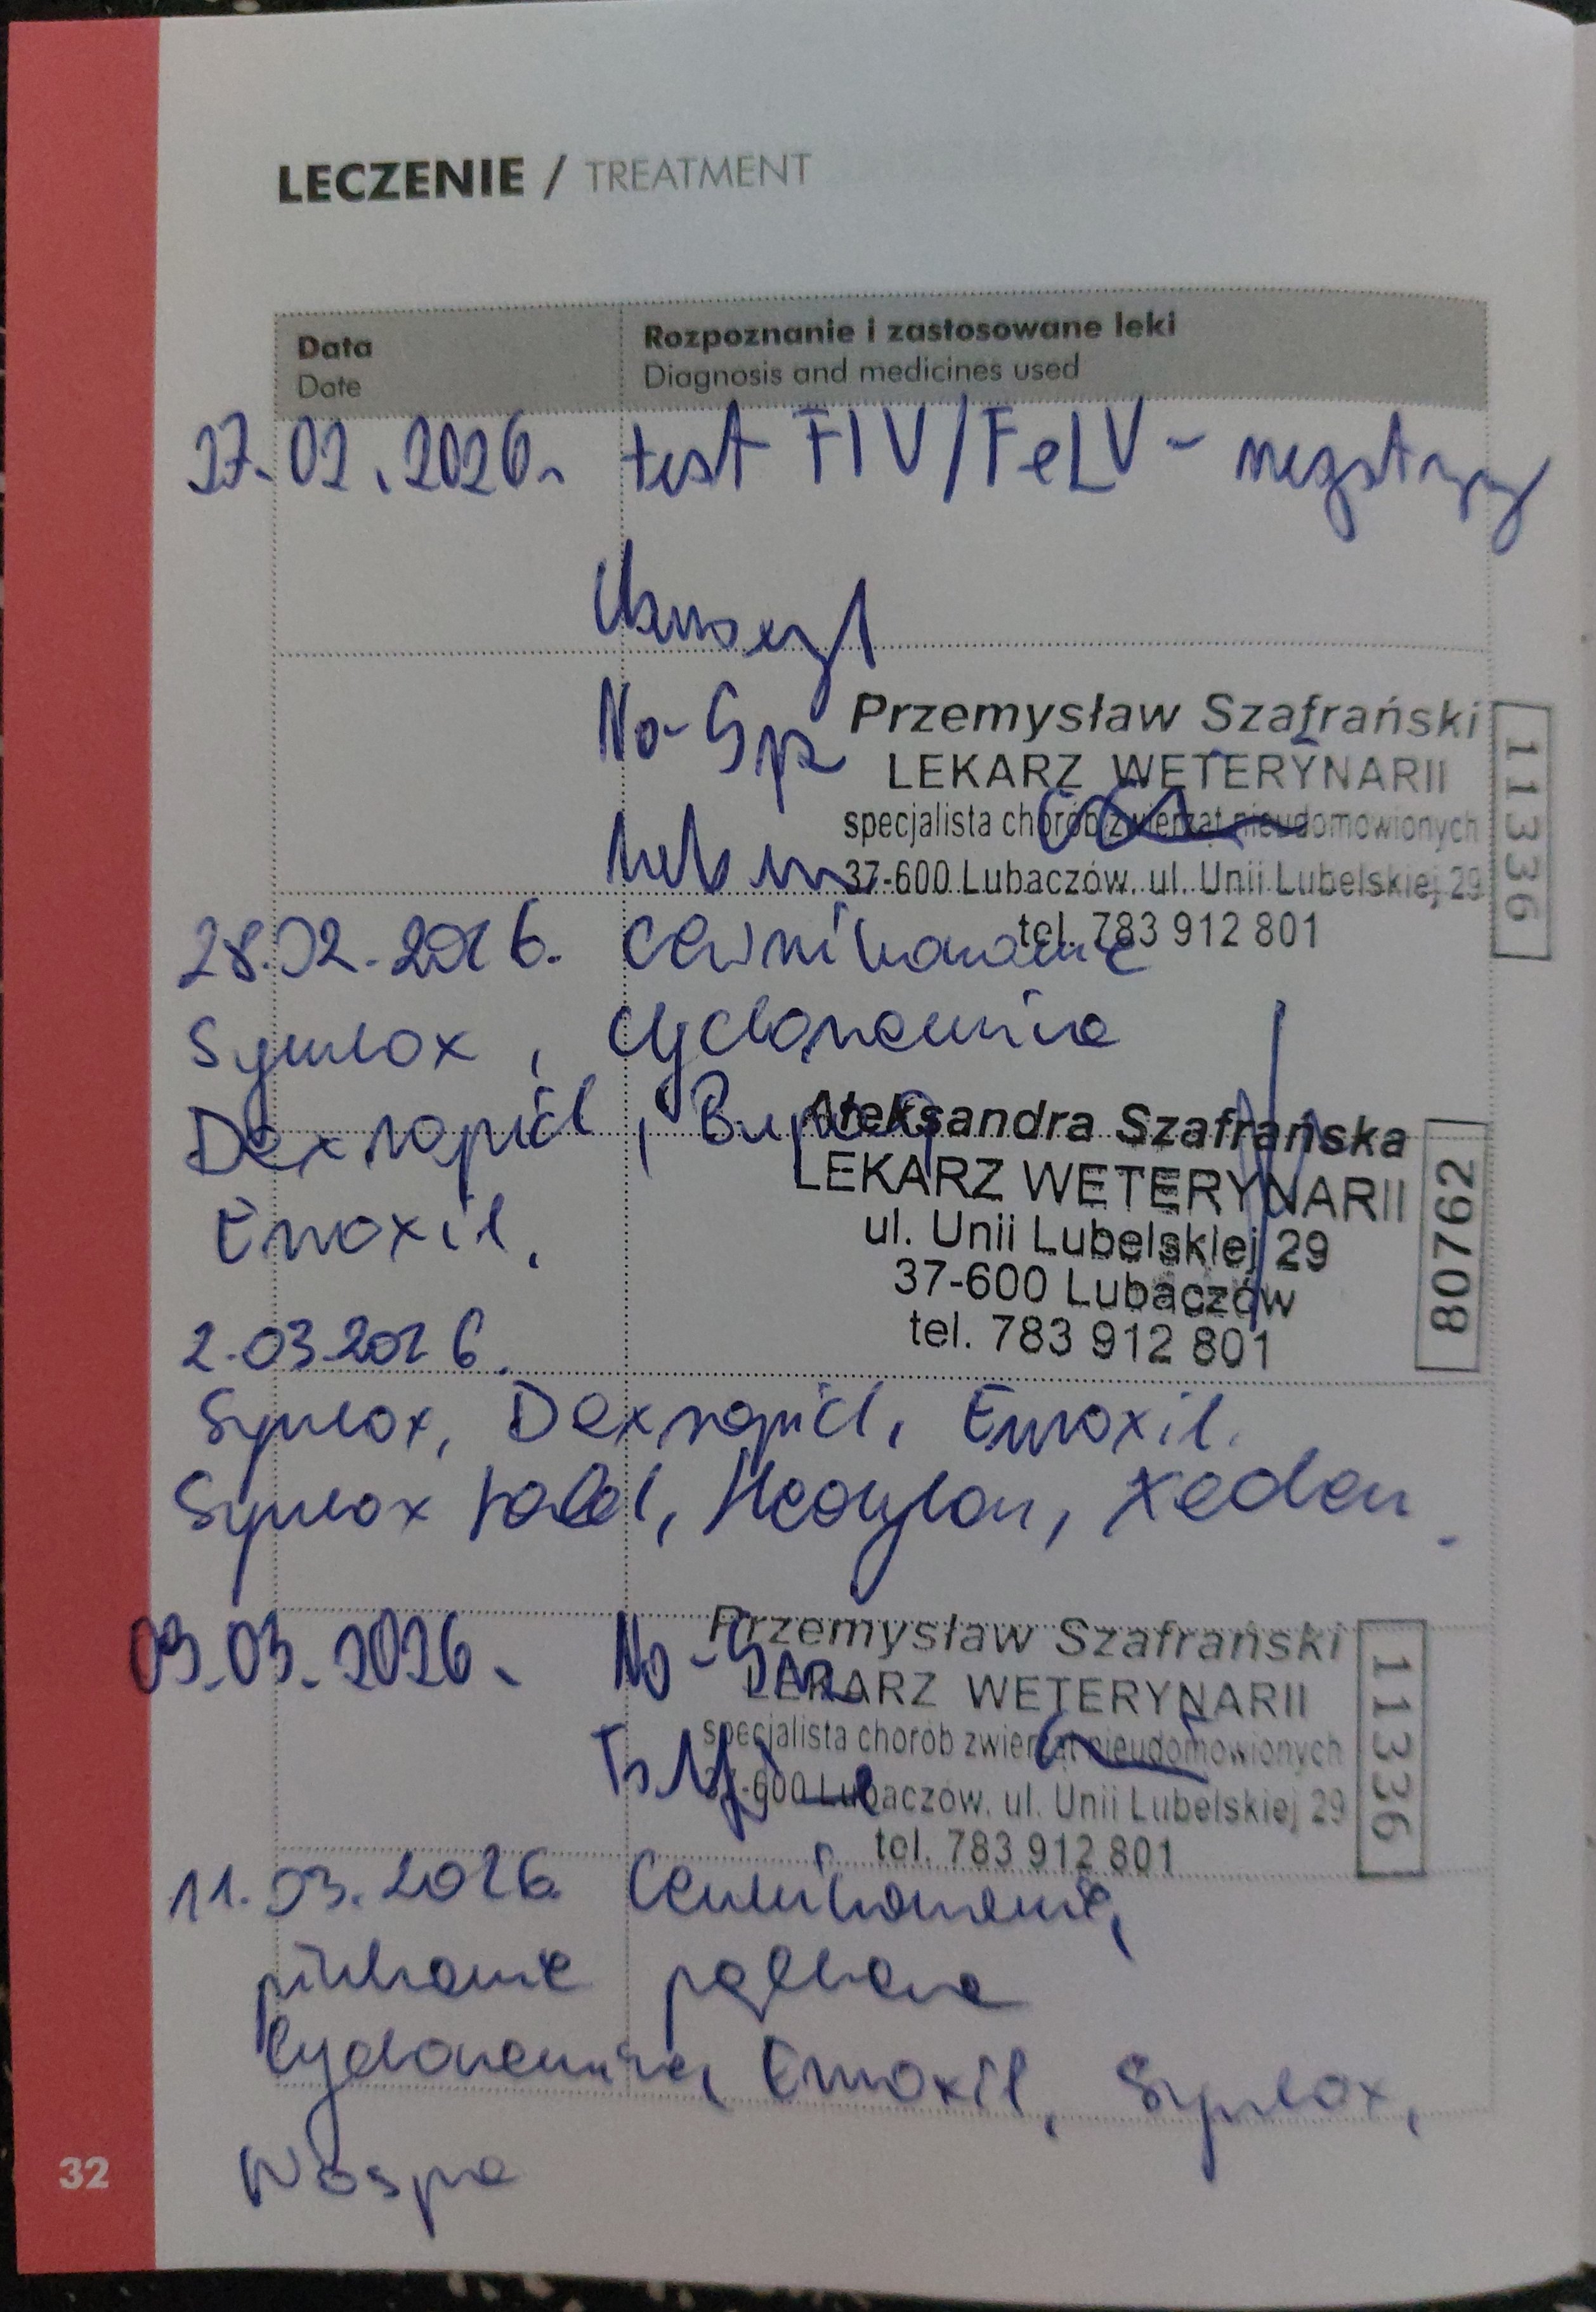 LECZENIE / TREATMENT
Data
Date
Rozpoznanie i zastosowane leki
Diagnosis and medicines used
27.02.2026. test FIV/FeLV -
No-Spa
Przemysław Szafrański
LEKARZ WETERYNARII
specjalista chorób zwierząt nieudomowionych
37-600 Lubaczów, ul. Unii Lubelskiej 29
tel. 783 912 801
11336
28.02.2026. cewnikowanie
Synulox, cyclonamina
Dexrapid,
Enroxil.
Aleksandra Szafrańska
LEKARZ WETERYNARII
ul. Unii Lubelskiej 29
37-600 Lubaczów
tel. 783 912 801
80762
2.03.2026.
Synulox, Dexrapid, Enroxil.
Synulox tabl, Xeden.
09.03.2026. No-Spa
Przemysław Szafrański
LEKARZ WETERYNARII
specjalista chorób zwierząt nieudomowionych
37-600 Lubaczów, ul. Unii Lubelskiej 29
tel. 783 912 801
11336
11.03.2026. Cewnikowanie,
płukanie pęcherza
Cyclonamina, Enroxil, Synulox,
Nospa
32